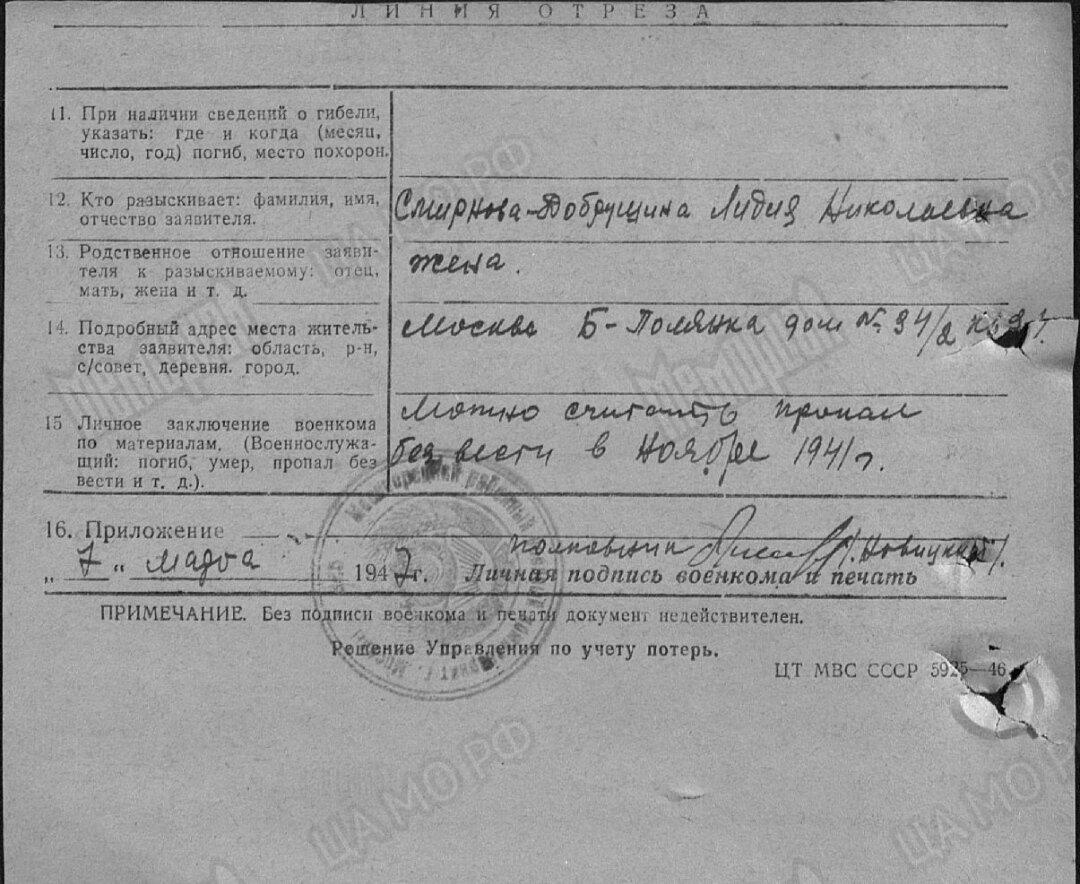 ЛИНИЯ ОТРЕЗА
11. При наличии сведений о гибели,
указать: где и когда (месяц,
число, год) погиб, место похорон.
12. Кто разыскивает: фамилия, имя,
отчество заявителя.
Смирнова-Добрущина Лидия Николаевна
13. Родственное отношение заяви-
теля к разыскиваемому: отец,
мать, жена и т. д.
жена.
14. Подробный адрес места житель-
ства заявителя: область, р-н,
с/совет, деревня. город.
Москва Б-Полянка дом № 34/2
15 Личное заключение военкома
по материалам, (Военнослужа-
щий: погиб, умер, пропал без
вести и т. д.).
Можно считать пропал
без вести в Ноябре 1941 г.
16. Приложение
полковник /Новицкий/.
„ 7 " марта 1947 г. Личная подпись военкома и печать
ПРИМЕЧАНИЕ. Без подписи военкома и печати документ недействителен.
Решение Управления по учету потерь.
ЦТ МВС СССР 5925—46
Мемориал
ЦА МО РФ